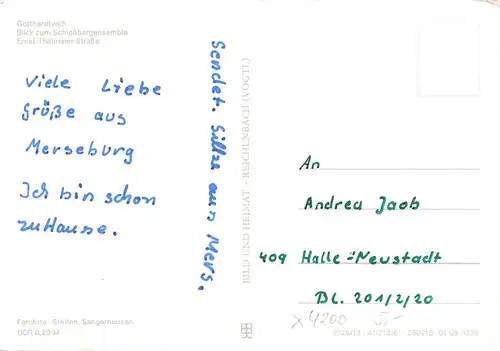 Gotthardteich
Blick zum Schloßbergensemble
Ernst-Thälmann-Straße
Viele Liebe
Grüße aus
Merseburg
Ich bin schon
zuHause.
Sendet. Silke aus Mers.
BILD UND HEIMAT · REICHENBACH (VOGTL)
An
Andrea Jacob
409 Halle-Neustadt
BL. 201/2/20
x4200 5,-
Farbfoto: Steffen, Sangerhausen
DDR 0,20 M
01 08